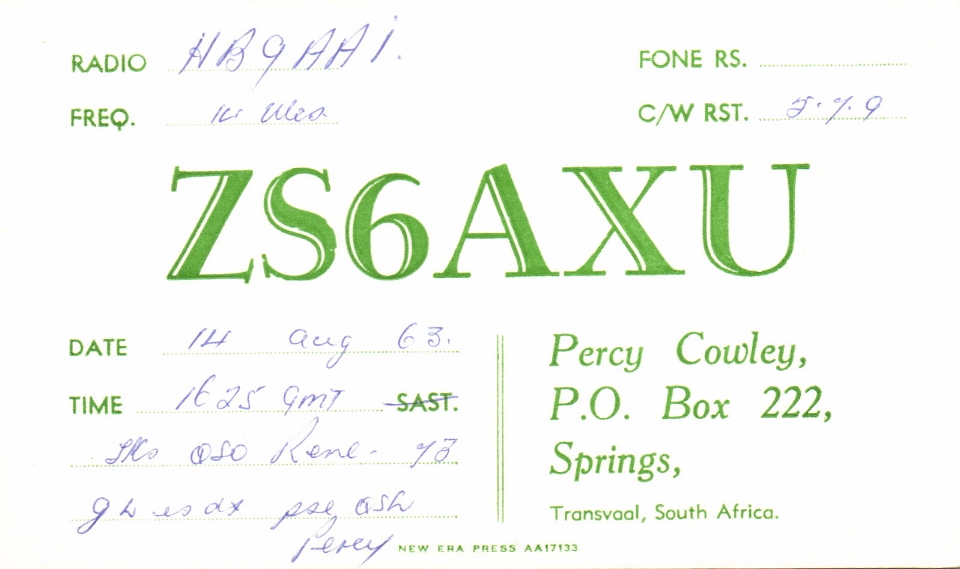 RADIO HB9AAI.
FONE RS.
FREQ. 14 Mcs
C/W RST. 5.7.9
ZS6AXU
DATE 14 Aug 63.
TIME 1625 GMT SAST.
Tks QSO Rene - 73
gb es dx pse QSL
Percy
Percy Cowley,
P.O. Box 222,
Springs,
Transvaal, South Africa.
NEW ERA PRESS AA17133